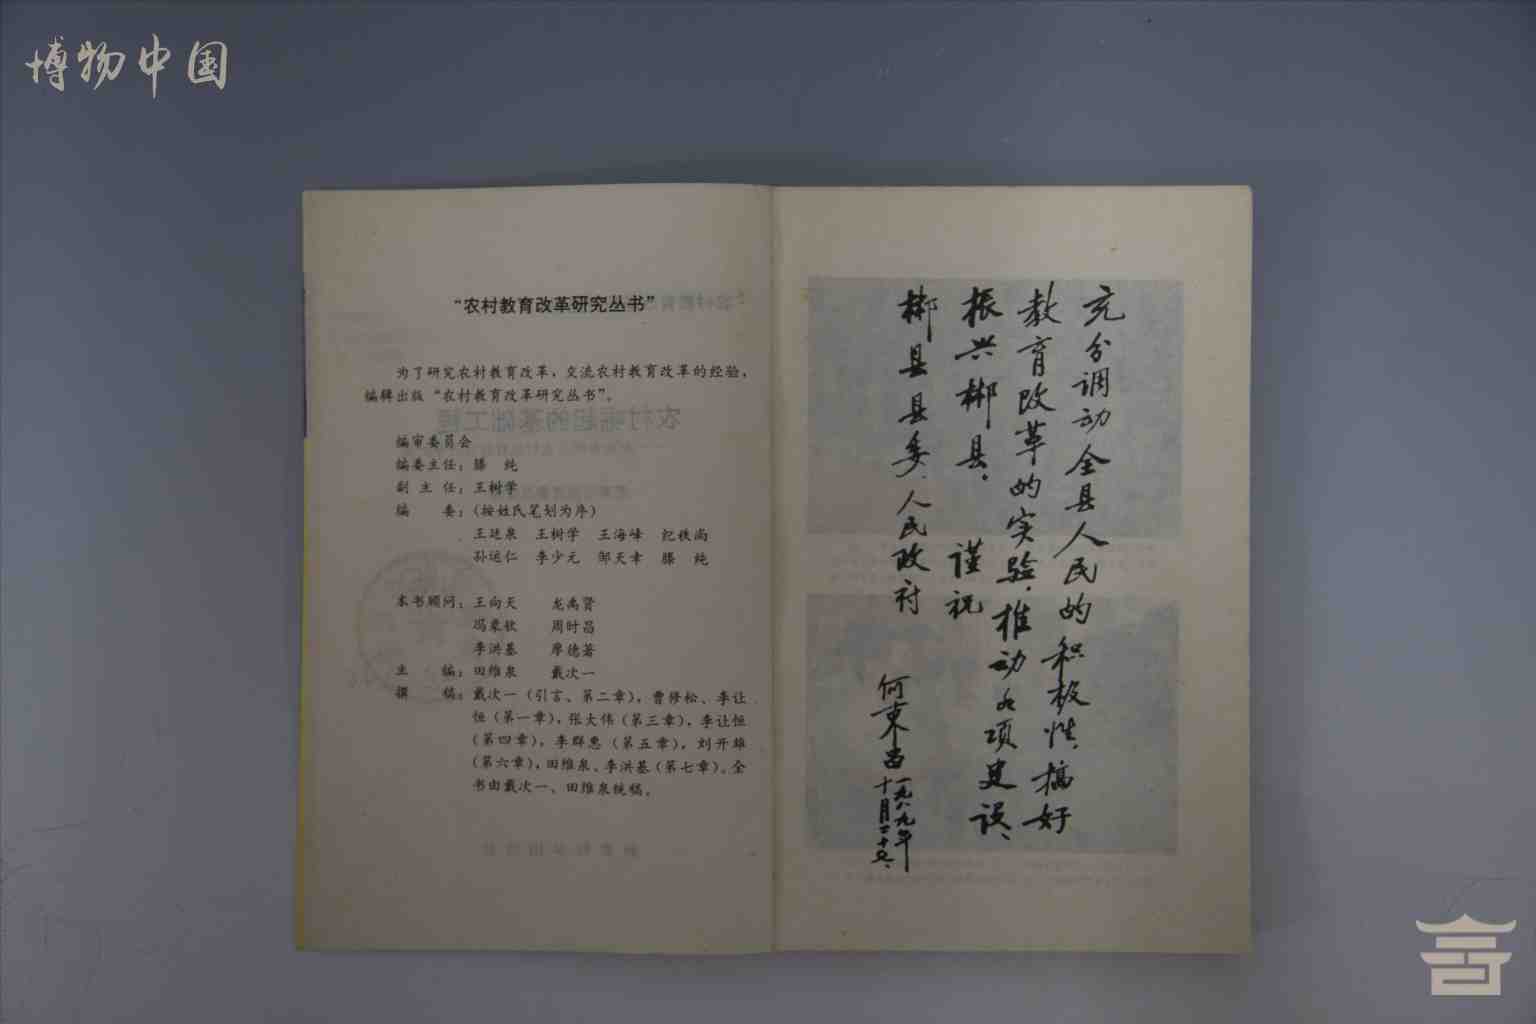 博物中国
“农村教育改革研究丛书”
为了研究农村教育改革，交流农村教育改革的经验，
编辑出版“农村教育改革研究丛书”。
编审委员会
编委主任：滕 纯
副 主 任：王树学
编 委：（按姓氏笔划为序）
王廷泉 王树学 王海峰 纪秩尚
孙运仁 李少元 邹天幸 滕 纯
本书顾问：王向天 龙禹贤
冯象钦 周时昌
李洪基 廖德著
主 编：田维泉 戴次一
撰 稿：戴次一（引言、第二章），曹修松、李让
恒（第一章），张大伟（第三章），李让恒
（第四章），李群惠（第五章），刘开雄
（第六章），田维泉、李洪基（第七章）。全
书由戴次一、田维泉统稿。
充分调动全县人民的积极性，搞好
教育改革的实验，推动各项建设、
振兴郴县。 谨祝
郴县县委、人民政府
何东昌
一九八九年
十月二十